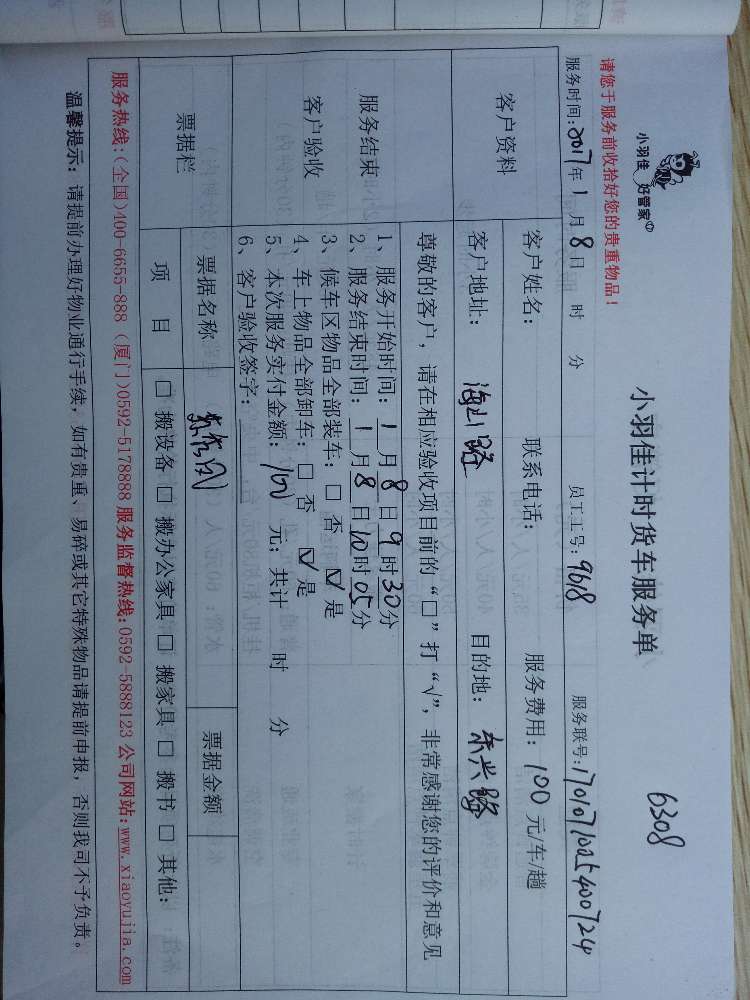 小羽佳 好管家
小羽佳计时货车服务单
6308
请您于服务前收拾好您的贵重物品！
服务时间：2017年1月8日 时 分 员工工号：9618 服务联号：1701071025400724
客户资料
客户姓名： 联系电话： 服务费用：100元/车/趟
客户地址：海山路 目的地：东兴路
服务结束
客户验收
尊敬的客户，请在相应验收项目前的“□”打“√”，非常感谢您的评价和意见
1、服务开始时间：1月8日9时30分
2、服务结束时间：1月8日10时05分
3、候车区物品全部装车：□ 否 ☑ 是
4、车上物品全部卸车：□ 否 ☑ 是
5、本次服务实付金额：100元；共计 时 分
6、客户验收签字：
票据栏
票据名称 票据金额
项 目 □ 搬设备 □ 搬办公家具 □ 搬家具 □ 搬书 □ 其他：
服务热线：(全国)400-6655-888 (厦门)0592-5178888 服务监督热线：0592-5888123 公司网站：www.xiaoyujia.com
温馨提示：请提前办理好物业通行手续，如有贵重、易碎或其它特殊物品请提前申报，否则我司不予负责。